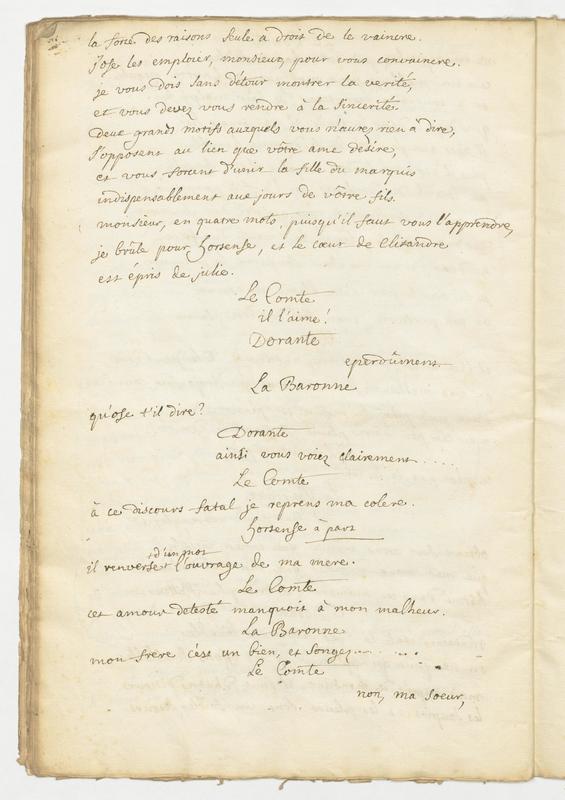 la force des raisons seule a droit de le vaincre.
j'ose les emploier, monsieur, pour vous convaincre.
je vous dois sans détour montrer la verité,
et vous devez vous rendre à la sincerité.
deux grands motifs auxquels vous n'aurez rien à dire,
s'opposent au lien que vôtre ame désire,
et vous forcent d'unir la fille du marquis
indispensablement aux jours de vôtre fils.
monsieur, en quatre mots, puisqu'il faut vous l'apprendre,
je brûle pour hortense, et le cœur de Clitandre
est épris de julie.
Le Comte
il l'aime!
Dorante
eperdûment
La Baronne
qu'ose t'il dire?
Dorante
ainsi vous voiez clairement .....
Le Comte
à ce discours fatal je reprens ma colere.
hortense à part
+ d'un mot
il renverse + l'ouvrage de ma mere.
Le Comte
cet amour detesté manquoit à mon malheur.
La Baronne
mon frere c'est un bien, et songez.......
Le Comte
non, ma soeur,